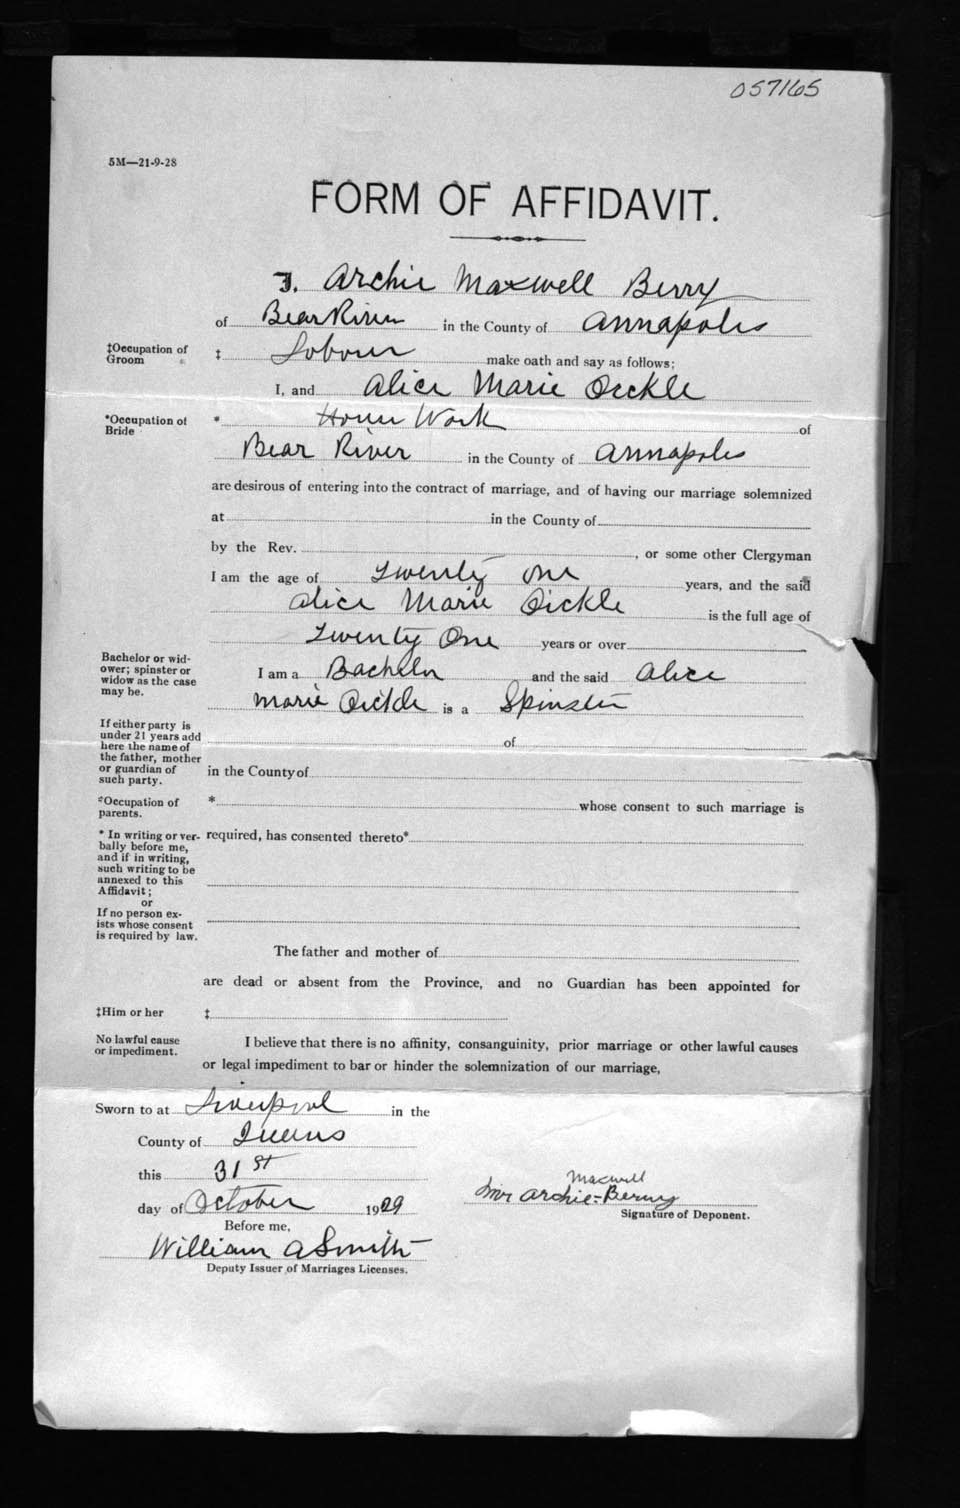 057165
5M—21-9-28
FORM OF AFFIDAVIT.
I, Archie Maxwell Berry
of Bear River in the County of Annapolis
‡Occupation of Groom ‡ Labour make oath and say as follows;
I, and Alice Marie Oickle
*Occupation of Bride * House Work of
Bear River in the County of Annapolis
are desirous of entering into the contract of marriage, and of having our marriage solemnized
at in the County of
by the Rev. , or some other Clergyman
I am the age of twenty one years, and the said
Alice Marie Oickle is the full age of
Twenty One years or over
Bachelor or widower; spinster or widow as the case may be.
I am a Bachelor and the said Alice
Marie Oickle is a Spinster
If either party is under 21 years add here the name of the father, mother or guardian of such party.
of
in the County of
*Occupation of parents.
* whose consent to such marriage is
* In writing or verbally before me, and if in writing, such writing to be annexed to this Affidavit; or If no person exists whose consent is required by law.
required, has consented thereto*
The father and mother of
are dead or absent from the Province, and no Guardian has been appointed for
‡Him or her ‡
No lawful cause or impediment.
I believe that there is no affinity, consanguinity, prior marriage or other lawful causes
or legal impediment to bar or hinder the solemnization of our marriage,
Sworn to at Liverpool in the
County of Queens
this 31st
day of October 1929
Maxwell
Archie Berry
Signature of Deponent.
Before me,
William A Smith
Deputy Issuer of Marriages Licenses.